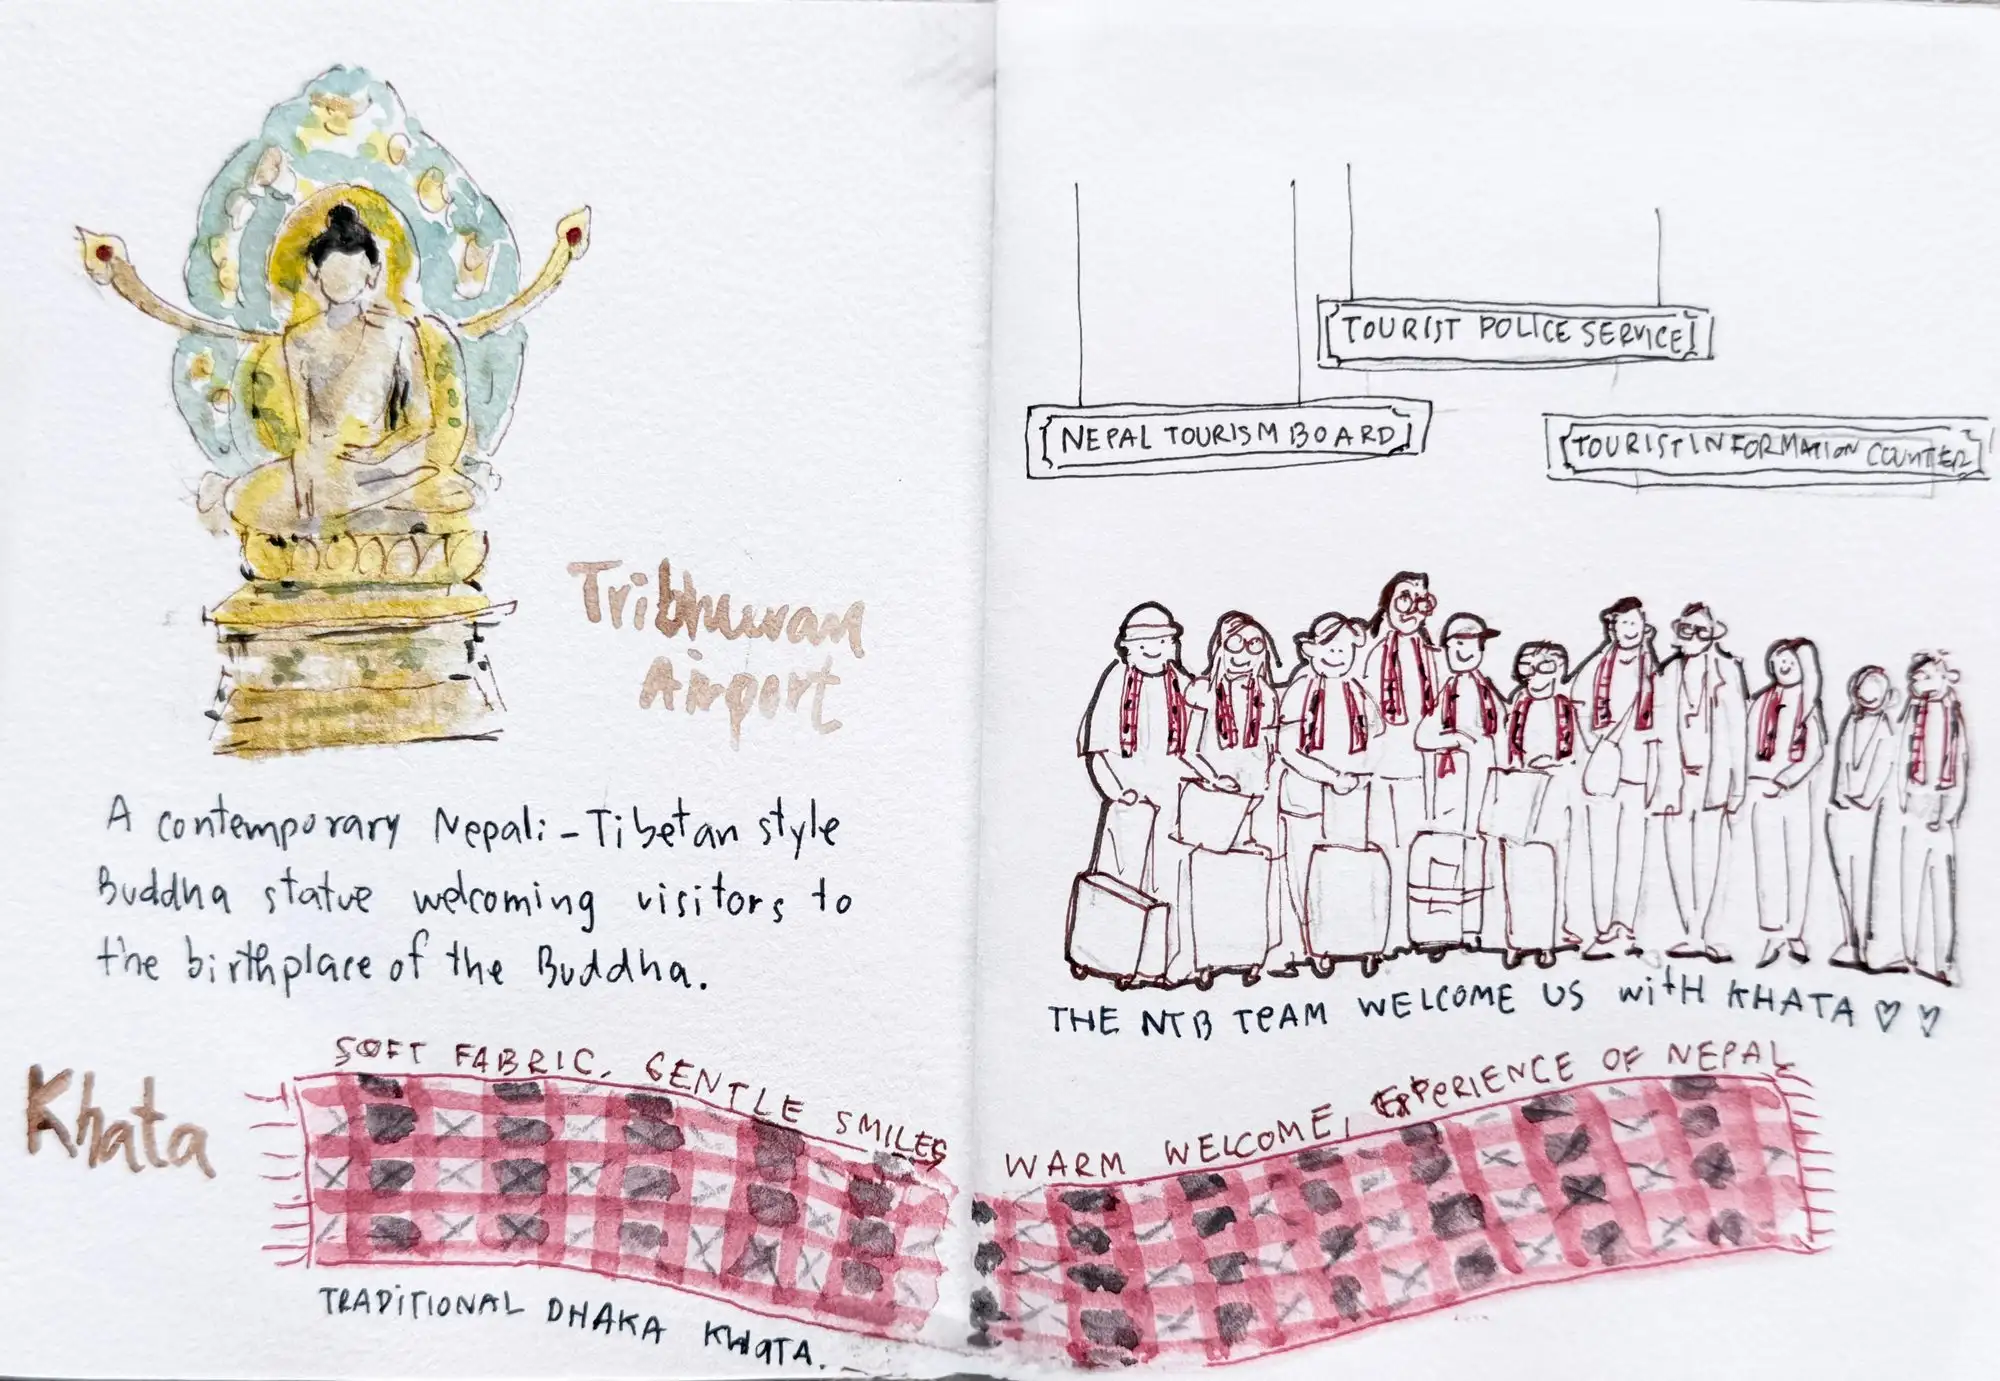 Tribhuwan
Airport
A contemporary Nepali-Tibetan style
Buddha statue welcoming visitors to
the birthplace of the Buddha.
Khata
SOFT FABRIC, GENTLE SMILES
TRADITIONAL DHAKA KHATA.
TOURIST POLICE SERVICE
NEPAL TOURISM BOARD
TOURIST INFORMATION COUNTER
THE NTB TEAM WELCOME US WITH KHATA ♡ ♡
WARM WELCOME, EXPERIENCE OF NEPAL